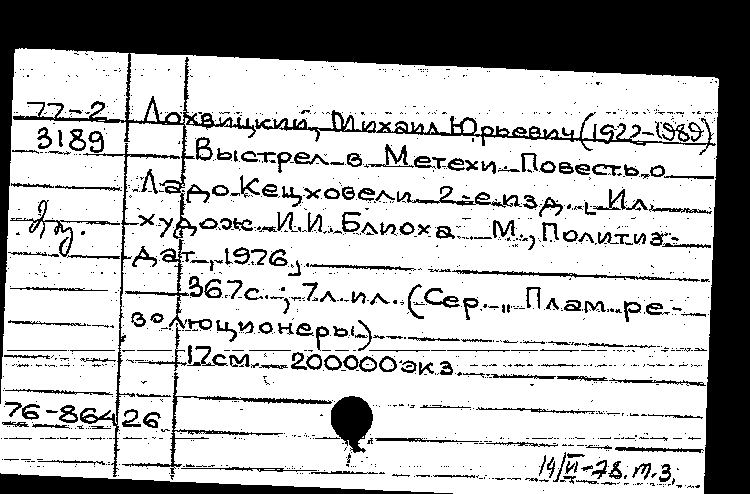 77-2 Лохвицкий, Михаил Юрьевич (1922-1989)
3189 Выстрел в Метехи. Повесть о
Ладо Кецховели. 2-е изд. [Ил.
худож. И.И. Блиоха. М., Политиз-
дат, 1976.
367 с.; 7 л. ил. (Сер. „Плам. ре-
золюционеры)
17 см. 200000 экз.
76-86426
14/VI-78. т.3.